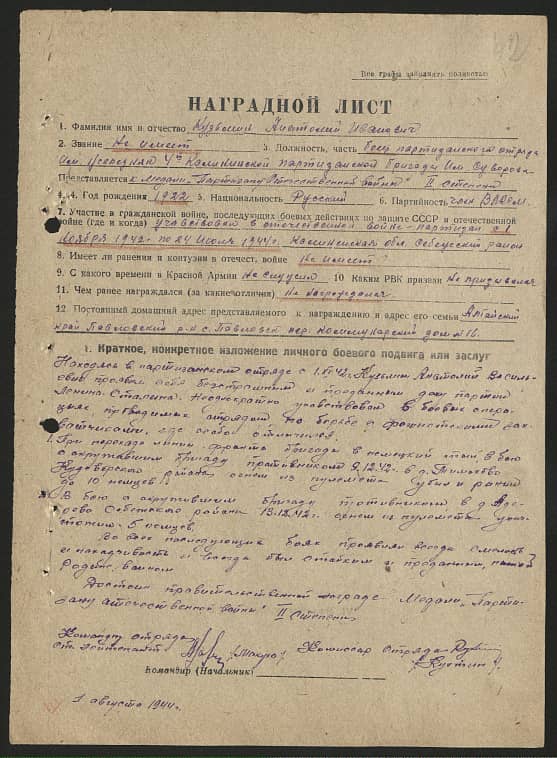 Все графы заполнять полностью
НАГРАДНОЙ ЛИСТ
1. Фамилия имя и отчество Кузьмин Анатолий Иванович
2. Звание не имеет 3. Должность, часть боец партизанского отряда
им. 4й Калининской партизанской бригады им. Суворова
Представляется к медали "Партизану Отечественной войны" II степени
4. Год рождения 1922 5. Национальность Русский 6. Партийность член ВЛКСМ.
7. Участие в гражданской войне, последующих боевых действиях по защите СССР и отечественной
войне (где и когда) участвовал в отечественной войне - партизан с 1
ноября 1942г. по 24 июля 1944г. Калининская обл. Себежский район
8. Имеет ли ранения и контузии в отечест. войне не имеет
9. С какого времени в Красной Армии не служил 10 Каким РВК призван не призывался
11. Чем ранее награждался (за какие отличия) не награждался.
12. Постоянный домашний адрес представляемого к награждению и адрес его семьи Алтайский
край Павловский р-н с. Павловск пер. Коммунарский дом №16.
1. Краткое, конкретное изложение личного боевого подвига или заслуг
Находясь в партизанском отряде с 1.11.42г. Кузьмин Анатолий Василь-
евич проявил себя бесстрашным и преданным делу партии
Ленина-Сталина. Неоднократно участвовал в боевых опера-
циях, проводимых отрядом по борьбе с фашистскими зах-
ватчиками, где особо отличился.
1. При переходе линии фронта бригады в немецкий тыл в бою
с окружавшим бригаду противником 9.12.42г. в д.
района огнем из пулемета убил и ранил
до 10 немцев.
В бою с окружившим бригаду противником в д.
Себежского района 13.12.42г. огнем из пулемета унич-
тожил 5 немцев.
Во всех последующих боях проявлял всегда смелость
и находчивость и всегда был стойким и преданным
Родине воином
Достоин правительственной награде - Медали "Парти-
зану отечественной войны" II степени
Командир отряда
ст. лейтенант Комиссар отряда
Командир (Начальник)
1 августа 1944г.